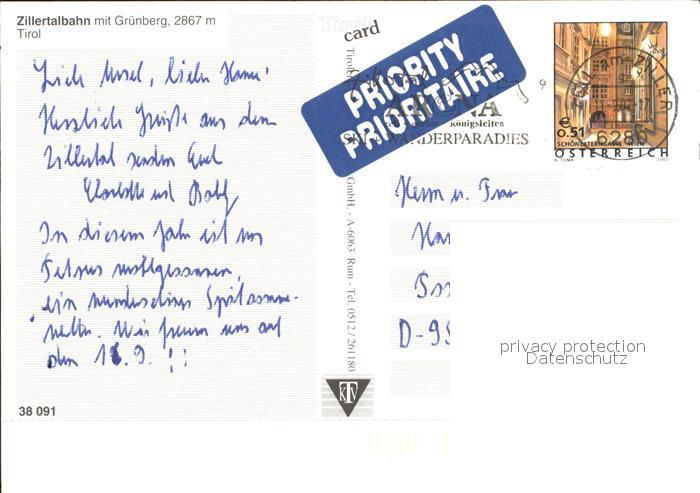 Zillertalbahn mit Grünberg, 2867 m
Tirol
Herzliche Grüße aus dem
Zillertal senden Euch
Charlotte und
In diesem Jahr ist uns
Petrus wohlgesonnen,
ein wunderschönes Spätsommer-
wetter. Wir freuen uns auf
den 9. !!
38 091
Tirol
card
GmbH. - A-6063 Rum - Tel. 0512 / 261180
KTV
PRIORITY
PRIORITAIRE
ARENA
königsleiten
WANDERPARADIES
ZELL am ZILLER
628
€ 0.51
SCHÖNLATERNGASSE WIEN
ÖSTERREICH
A. TUMA 2002
Herrn u. Frau
D-95
privacy protection
Datenschutz